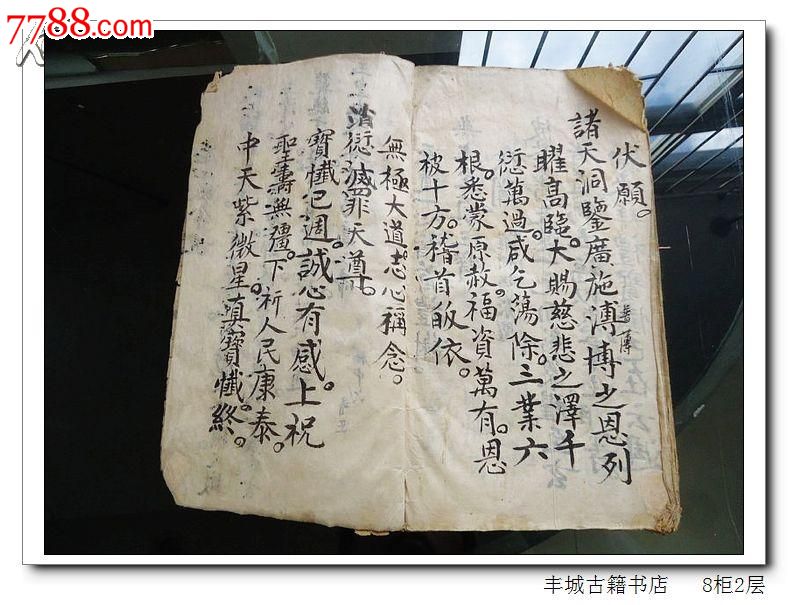 7788.com
伏願。
諸天洞鑒廣施溥博之恩列
普博
曜高臨。大賜慈悲之澤千
愆萬過咸乞蕩除。三業六
根。悉蒙原赦。福資萬有。恩
被十方。稽首皈依。
無極大道。志心稱念。
消愆滅罪天尊。
寶懺已週。誠心有感。上祝
聖壽無疆。下祈人民康泰。
中天紫微星真寶懺。終。
丰城古籍书店 8柜2层